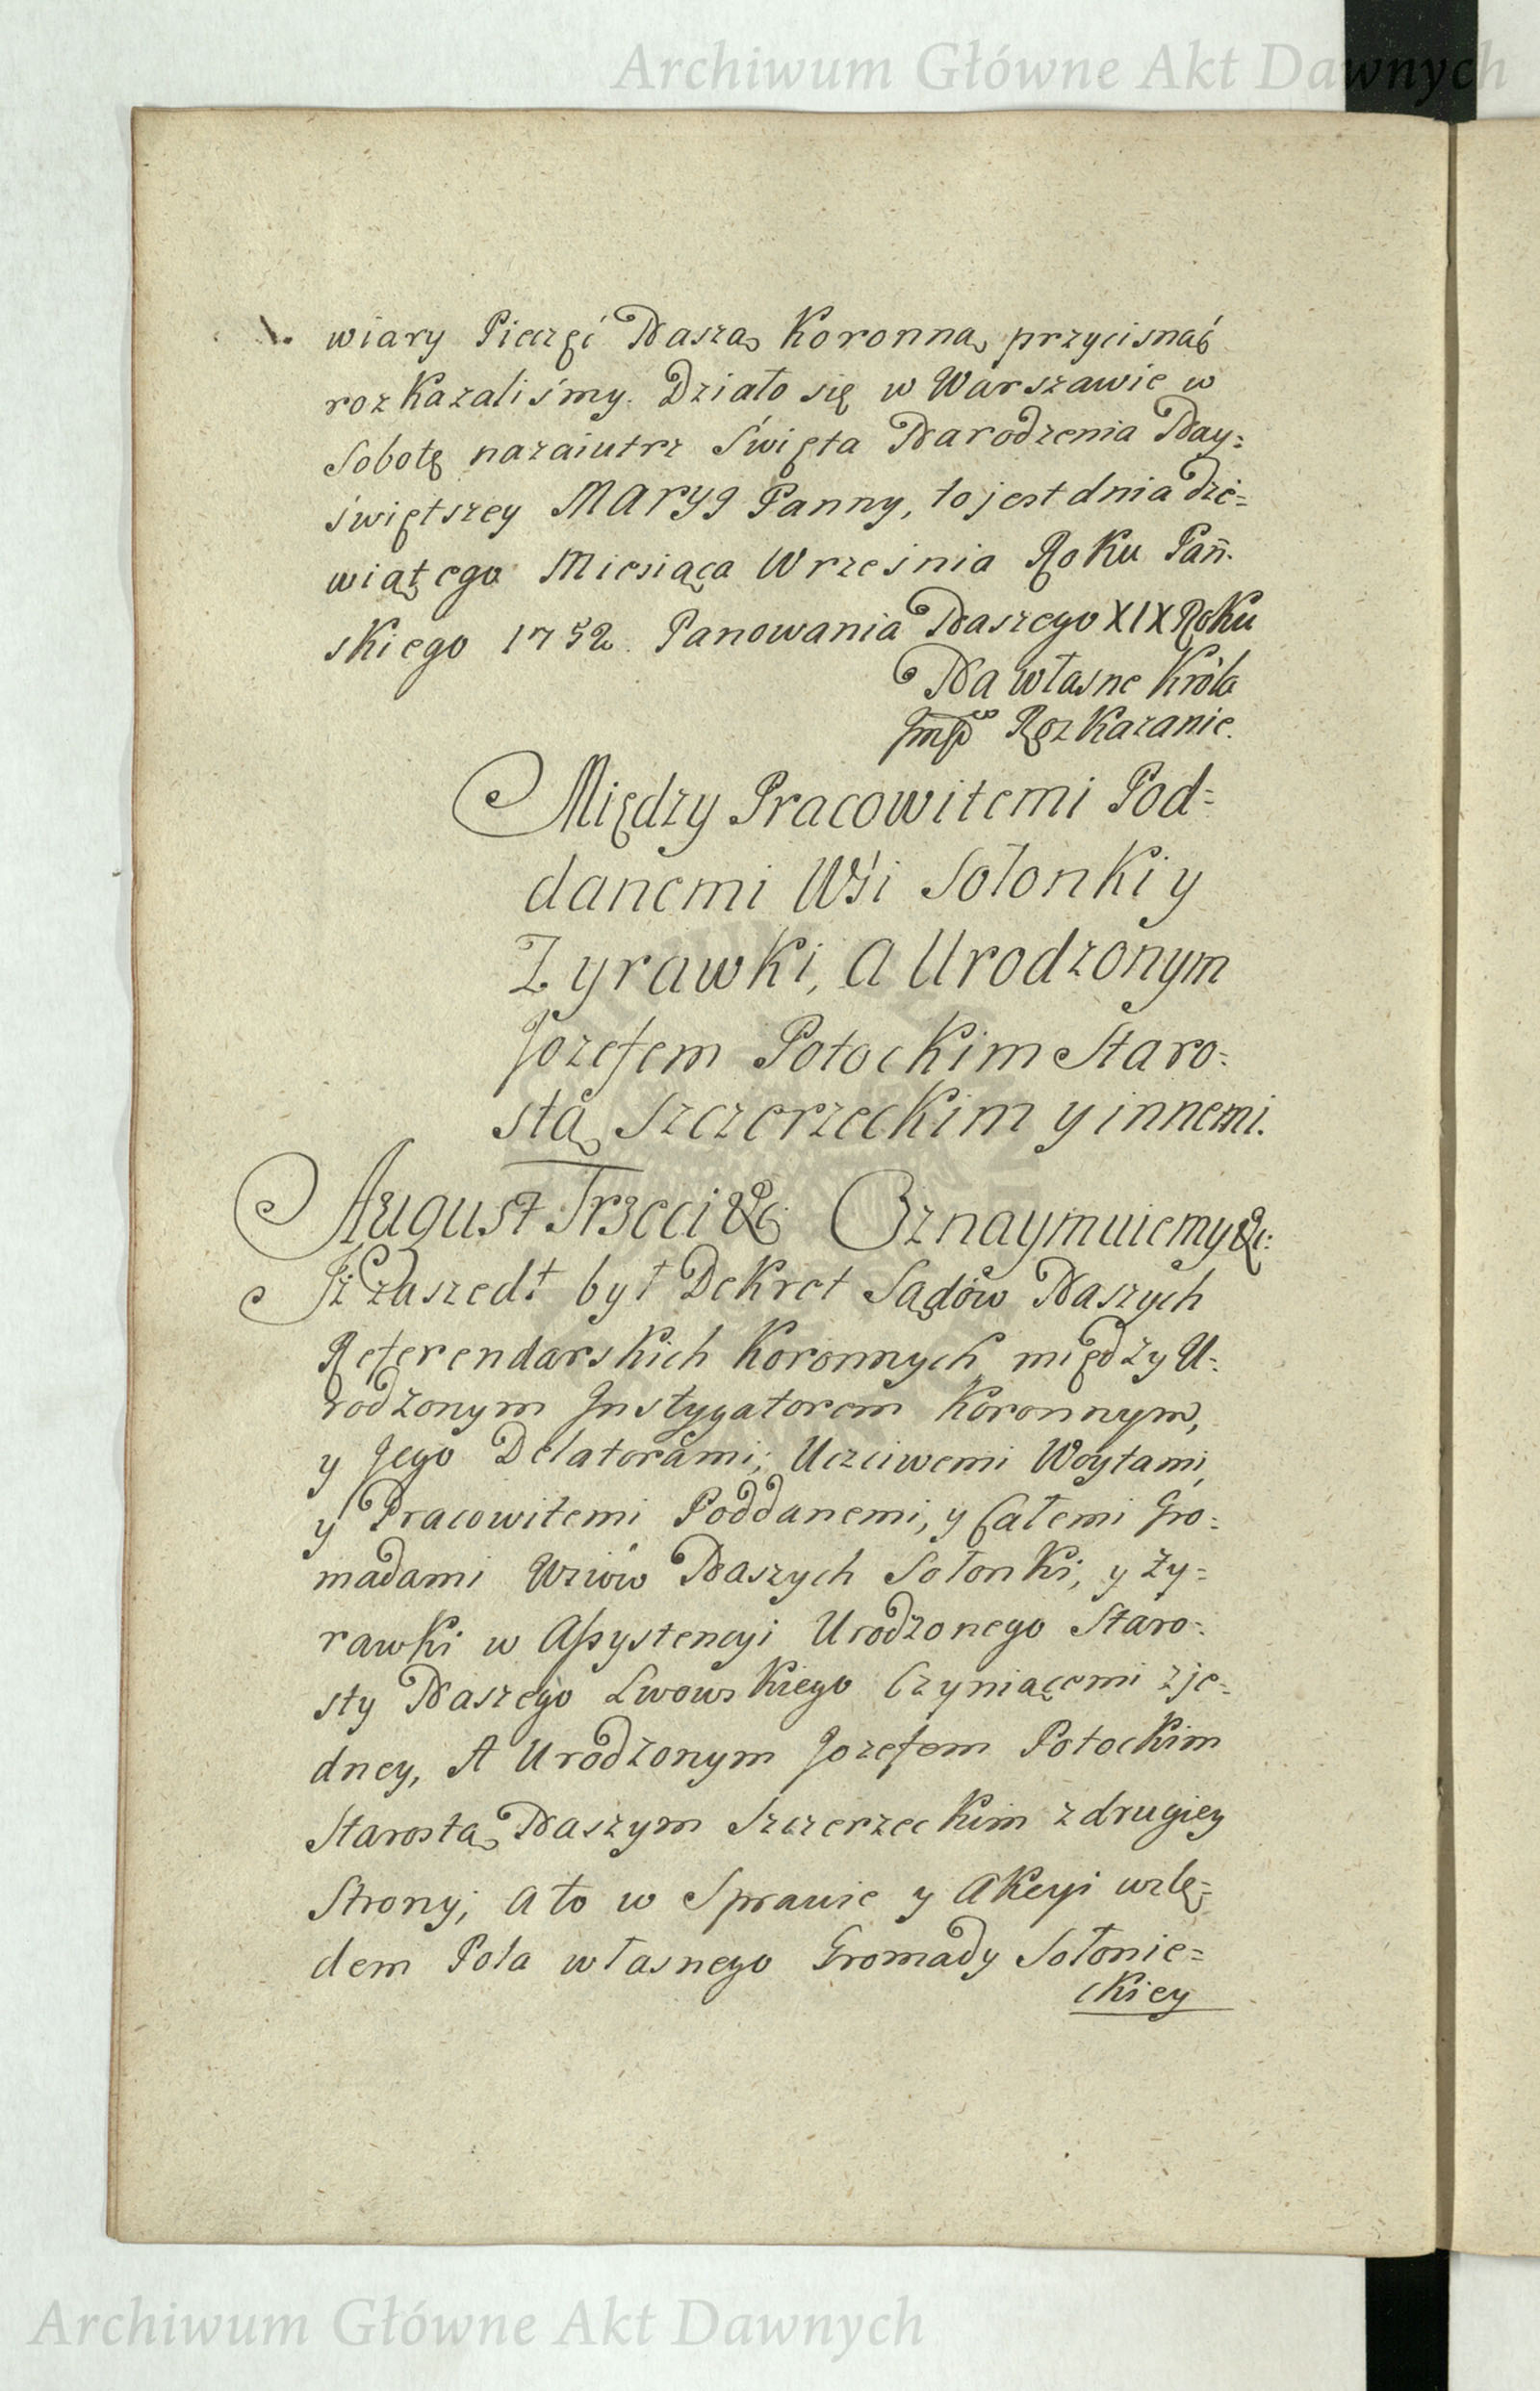 Archiwum Główne Akt Dawnych
wiary Pieczęć Naszą Koronną przycisnąć
rozkazaliśmy. Działo się w Warszawie w
Sobotę nazaiutrz Swięta Narodzenia Nay=
świętszey MARYI Panny, to jest dnia dzie=
wiątego Miesiąca Września Roku Pań=
skiego 1752. Panowania Naszego XIX Roku
Na własne Króla
Jmſci Rozkazanie.
Między Pracowitemi Pod=
danemi Wsi Sołonki y
Zyrawki, a Urodzonym
Jozefem Potockim Staro=
stą Szczerzeckim y innemi.
August Trzeci &c. Oznaymuiemy &c:
Iż zaszedł był Dekret Sądów Naszych
Referendarskich Koronnych między U=
rodzonym Instygatorem Koronnym,
y Jego Delatorami; Uczciwemi Woytami,
y Pracowitemi Poddanemi, y Całemi Gro=
madami Wsiów Naszych Sołonki, y Zy=
rawki w Aſsystencyi Urodzonego Staro=
sty Naszego Lwowskiego Czyniącemi z je=
dney, A Urodzonym Jozefem Potockim
Starostą Naszym Szczerzeckim z drugiey
Strony; a to w Sprawie y Akcyi wzlę=
dem Pola własnego Gromady Sołonie=
ckiey
Archiwum Główne Akt Dawnych